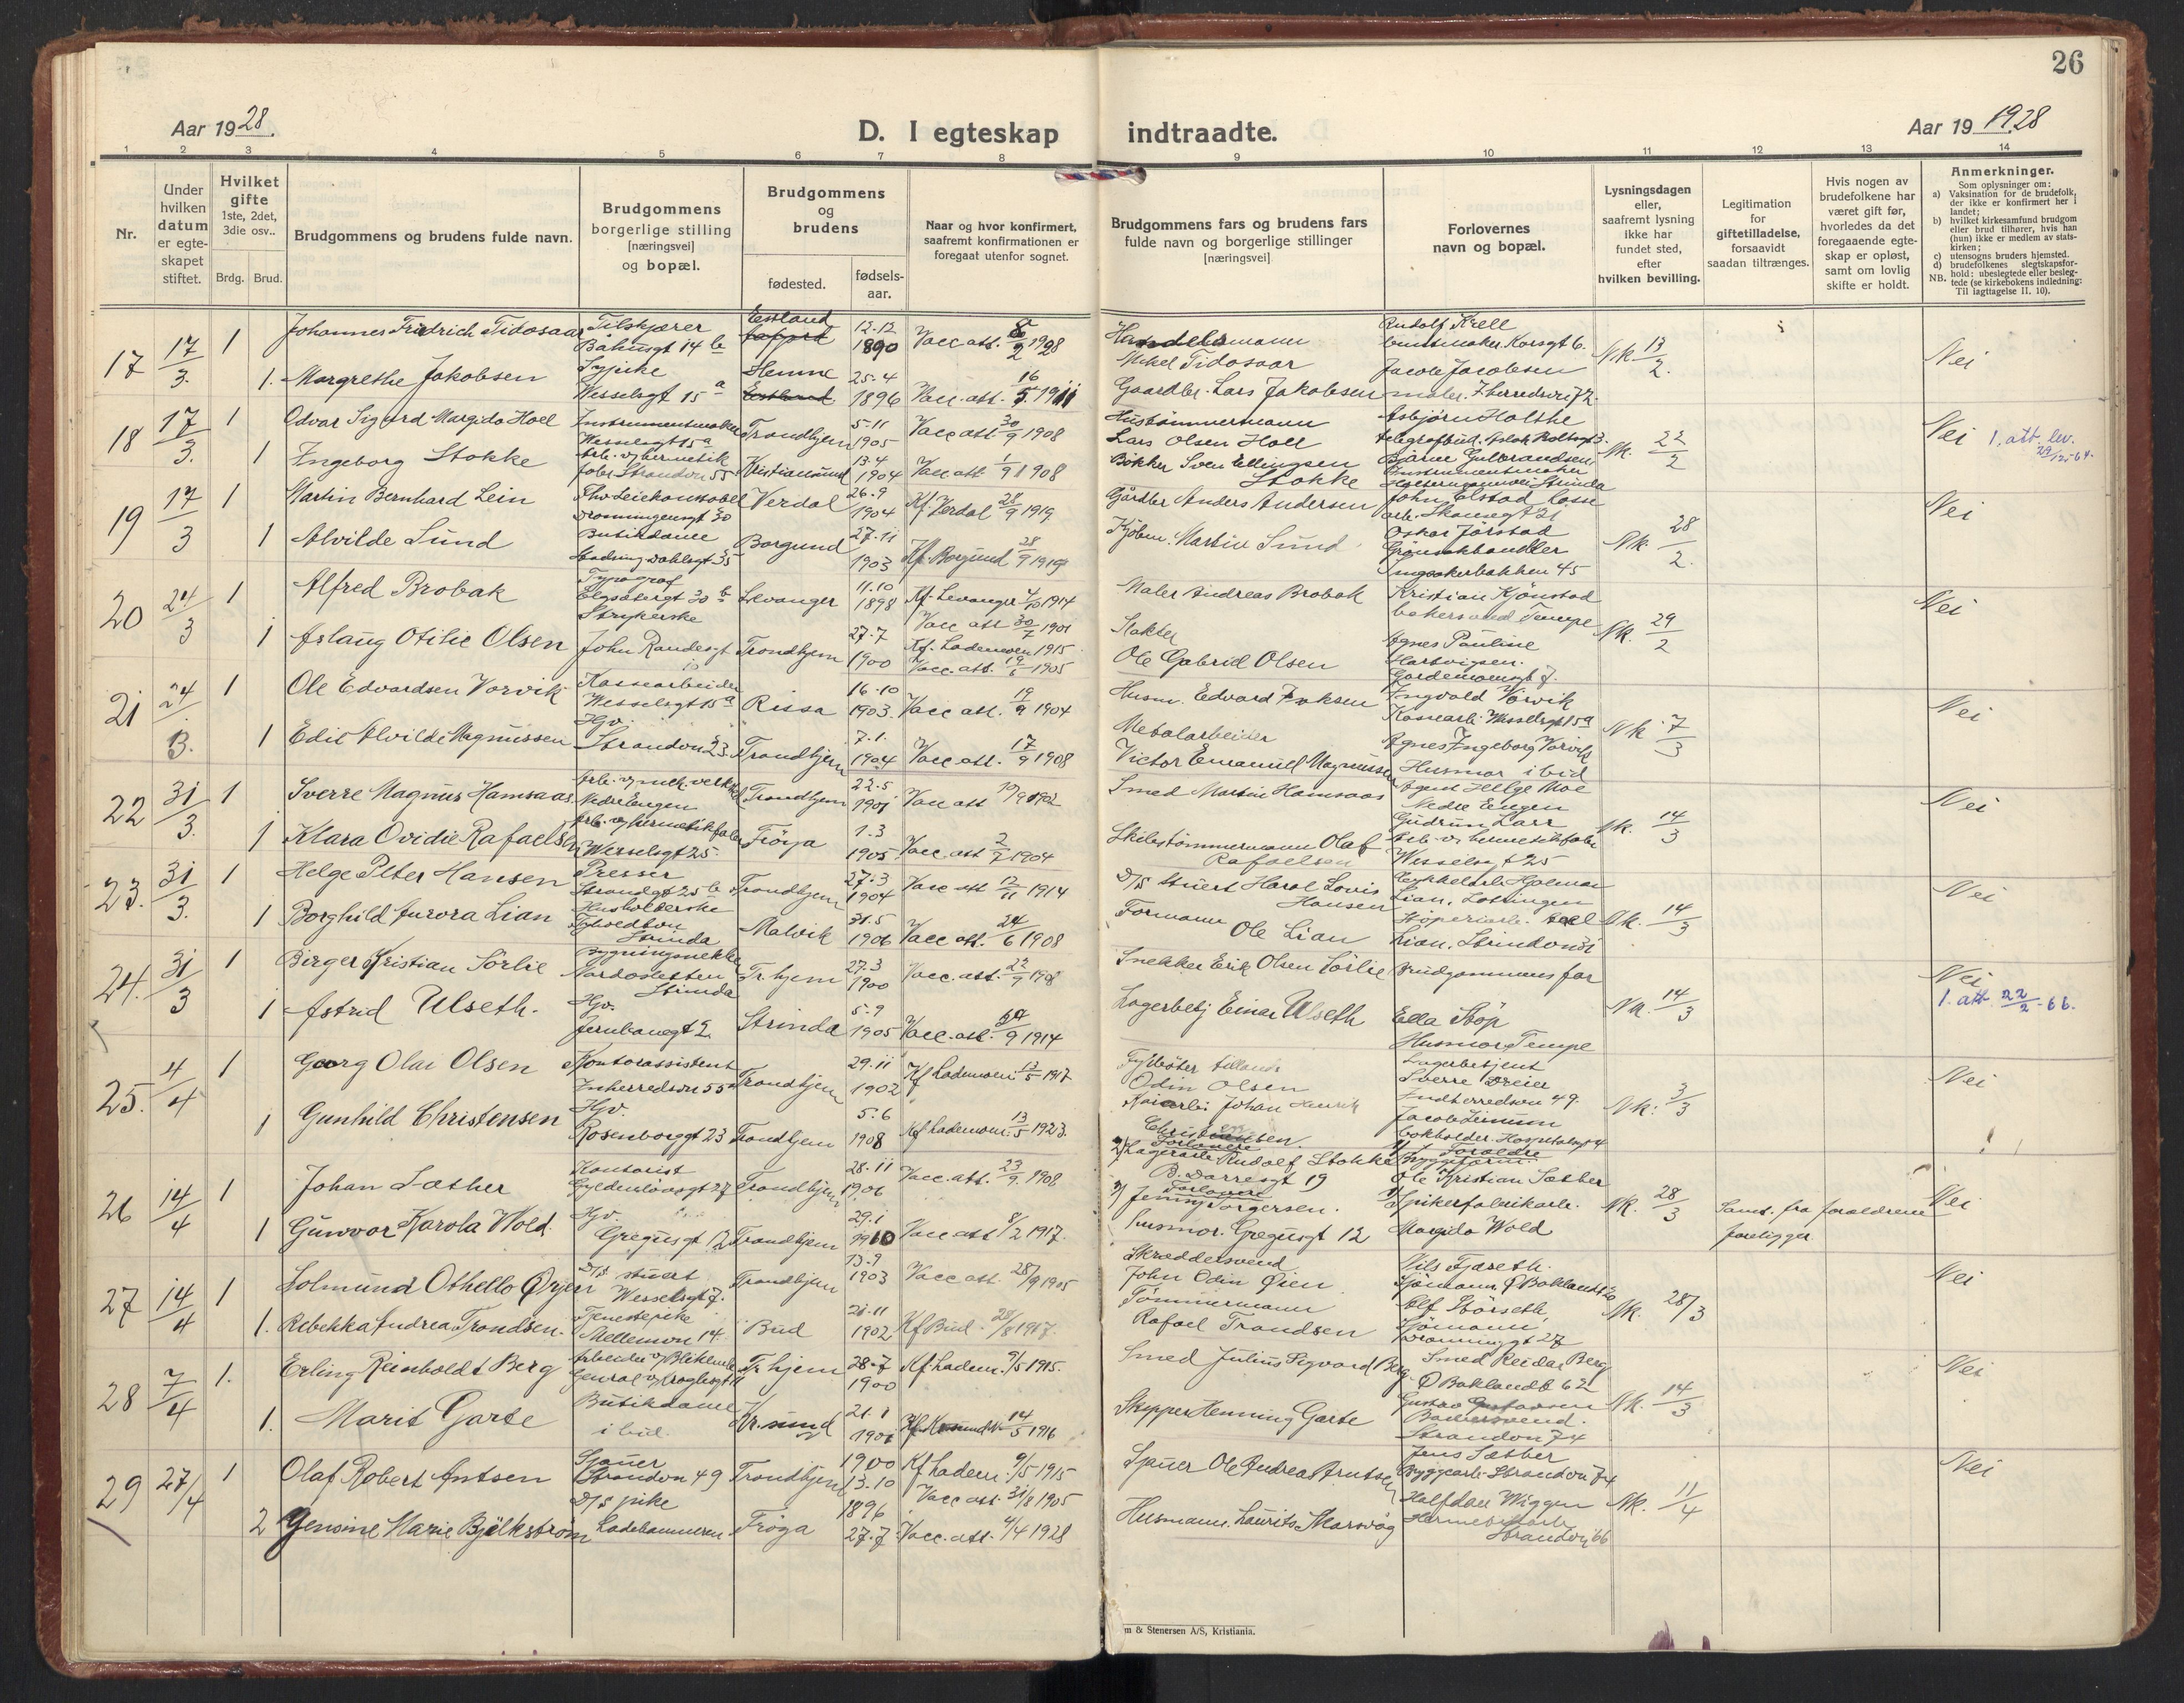 26
Aar 1928.
D. I egteskap indtraadte.
Aar 19 1928
1 2 3 4 5 6 7 8 9 10 11 12 13 14
Nr.
Under hvilken datum er egte-skapet stiftet.
Hvilket gifte 1ste, 2det, 3die osv..
Brdg. Brud.
Brudgommens og brudens fulde navn.
Brudgommens borgerlige stilling [næringsvei] og bopæl.
Brudgommens og brudens
fødested.
fødsels-aar.
Naar og hvor konfirmert, saafremt konfirmationen er foregaat utenfor sognet.
Brudgommens fars og brudens fars fulde navn og borgerlige stillinger [næringsvei]
Forlovernes navn og bopæl.
Lysningsdagen eller, saafremt lysning ikke har fundet sted, efter hvilken bevilling.
Legitimation for giftetilladelse, forsaavidt saadan tiltrænges.
Hvis nogen av brudefolkene har været gift før, hvorledes da det foregaaende egte-skap er opløst, samt om lovlig skifte er holdt.
Anmerkninger.
Som oplysninger om:
a) Vaksination for de brudefolk, der ikke er konfirmert her i landet;
b) hvilket kirkesamfund brudgom eller brud tilhører, hvis han (hun) ikke er medlem av stats-kirken;
c) utensogns bruders hjemsted.
d) brudefolkenes slegtskapsfor-hold: ubeslegtede eller besleg-tede (se kirkebokens indledning:
NB. Til iagttagelse II. 10).
17 17/3. 1 Johannes Fridrich Tidosaar Tilskjærer Båhusgt 14 b Estland 12.12 1890 Vacc att. 8/2 1928 Handelsmann Mihel Tidosaar Rudolf Krell buntmaker Korsgt 6. Nk. 13/2. Nei
1. Margrethe Jakobsen Sypike Wesselsgt 15 a Hemne Estland 25.4 1896 Vacc. att. 16/5 1911 Gaardbr. Lars Jakobsen Jacob Jacobsen maler
18 17/3. 1 Odvar Sigurd Margido Hoel Instrumentmaker Wesselsgt 15a Trondhjem 5.11 1905 Vacc att 30/9 1908 Hustømmermann Lars Olsen Hoel Asbjørn Holthe Nk. 22/2 Nei 1. att. lev. 29/12-64.
1 Ingeborg Stokke Arb. v/ hermetik fabr. Strandvn 55 Kristiansund 13.4 1904 Vacc att 1/9 1908 Bøkker Sven Ellingsen Stokke Bjarne Gulbrandsen Instrumentmaker
19 17/3 1 Martin Bernhard Lein Dronningensgt 30 Verdal 26.9 1904 Kf. Verdal 28/9 1919 Gårdbr Anders Andersen John Elstad Nei
1 Alvilde Sund Butikdame Borgund 27.11 1903 Kf. Borgund 28/9 1919 Kjøbm. Martin Sund Oskar Jørstad Grønsakhandler Nk. 28/2.
20 24/3 1 Alfred Brobak Typograf Levanger 11.10 1898 Kf. Levanger 4/10 1914 Vacc att 30/7 1901 Maler Andreas Brobak Kristian Kjønstad bakersvend Tempe Nk. 29/2 Nei
1 Aslaug Otilie Olsen Strykerske Trondhjem 27.7 1900 Kf. Lademoen 1915 Vacc. att. 19/6 1905 Slakter Ole Gabriel Olsen Agnes Pauline Hartvigsen. Gardemoensgt 7.
21 24/3. 1 Ole Edvardsen Vorvik Kassearbeider Wesselsgt 15 a Rissa 16.10 1903. Vacc att. 19/9 1904 Husm. Edvard Ingvald Vorvik Kassearb. Wesselsgt 15a Nk. 7/3 Nei
1 Edit Alvilde Magnussen Hjv. Strandvn 23. Trondhjem 7.1. 1904 Vacc. att. 17/9 1908 Metalarbeider Victor Emanuel Magnussen Agnes Ingeborg Vorvik Husmor ibid
22 31/3. 1 Sverre Magnus Hamsaas Arb. v/ mek. verksted Nedre Engen Trondhjem 22.5 1901 Vacc att 1902 Smed Martin Hamsaas Agent Helge Moe Nedre Engen Nk. 14/3 Nei
1 Klara Ovidie Rafaelsen Arb. v/ hermetikfabr Wesselsgt 25. Frøya 1.3 1905 Vacc att 1904 Skibstømmermann Olaf Rafaelsen Gudrun Larr Arb. v/ hermetikfabr Wesselsgt 25
23. 31/3. 1 Helge Peter Hansen Presser Strandgt 25 b Trondhjem 27.3 1904 Vacc att 12/11 1914 D/S Stuert Harol Lovis Hansen Hjalmar Lian. Nei
1 Borghild Aurora Lian Husholderske Strinda Malvik 31.5 1906 Vacc att. 24/6 1908 Formann Ole Lian Lian. Strindvn Nk. 14/3
24. 31/3 1 Birger Kristian Sørlie Bygningsnekker Nardosletten Strinda Tr.hjem 27.3 1900 Vacc. att. Snekker Erik Olsen Sørlie Brudgommens far Nei
1 Astrid Ulseth. Hjv. Jernbanegt 2 Strinda 5.9 1905 Vacc. att. 1914 Lagerbetj Einar Ulseth Ella Støp Husmor Tempe Nk. 14/3 1. att. 22/2-66.
25. 4/4 1 Georg Olai Olsen Kontorassistent Inherredsvn 55 Trondhjem 29.11 1902 Kf Lademoen 13/5 1917 Odin Olsen Lagerbetjent Sverre Dreier Indherredsvn 49. Nk: 3/3 Nei
1 Gunhild Christensen Hjv. Rosenborggt 23 Trondhjem 5.6 1908 Kf Lademoen 13/5 1923. Kaiarb. Johan Henrik Christensen. Jacob bokholder. Hospitalsgt 4
26 14/4 1 Johan Sæther Kontorist Gyldenløvesgt 27 Trondhjem 28.11 1906 Vacc. att. 23/9. 1908 2) Forlovere Lagerarb Rudolf Stokke B. Darresgt 19 1) Foreldre Ole Kristian Sæther Nk. 28/3 Sams. fra foreldrene foreligger Nei
1 Gunvor Karola Wold. Hjv. Gregusgt 12 Trondhjem 29.1 1910 Vacc att 8/2 1917. Forlovere Jenny Torgersen. husmor. Gregusgt 12 Spikerfabrikarb. Margido Wold
27 14/4 1 Solmund Othello Øyen D/S stuert Wesselsgt 7. Trondhjem 13.9 1903 Vacc att. 28/9 1905 Skræddersvend John Odin Øien Nils Fjæreth. Sjømann Nk. 28/3 Nei
1. Rebekka Andrea Trondsen. Tjenestepike Mellemvn 14. Bud 21.11 1902 Kf Bud 1917. Tømmermann Rafael Trondsen Alf Størseth Sjømann Dronninggt 27
28 7/4 1. Erling Reinholdt Berg Tr.hjem 28.7 1900 Kf. Ladem. 9/5 1915. Smed Julius Sigvard Berg Smed Reidar Berg Ø Baklandt 62 Nk. 14/3 Nei
1. Marit Garte Butikdame ibid. Kr.sund 21.1 1901 14/5 1916 Skipper Henning Garte Gustav Gustavsen Bakersvend. Strandvn 74
29 27/4 1 Olaf Robert Antsen Sjauer Strandvn 49 Trondhjem 1900 13.10 Kf Ladem. 9/5 1915 Vacc. att. 31/8 1905 Sjauer Ole Andrea Arntsen Jens Sæther Bryggearb. Strandvn 74 Nk. 11/4 Nei
2 Genoine Marie Bjølkstrøm D/S pike Ladehammeren Frøya 1896 27.7 Vacc. att. 4/4 1928 Husmann. Laurits Marsvåg Halfdan Wiggen Hermetikarb Strandvn 66
m & Stenersen A/S, Kristiania.